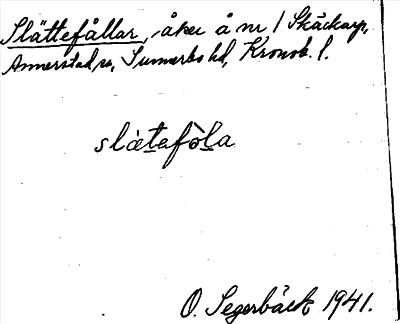 Slättefållar, åker å nr 1 Skäckarp,
Annerstad, sn, Sunnerbo hd, Kronob. l.
slætefòla
O. Segerbäck 1941.